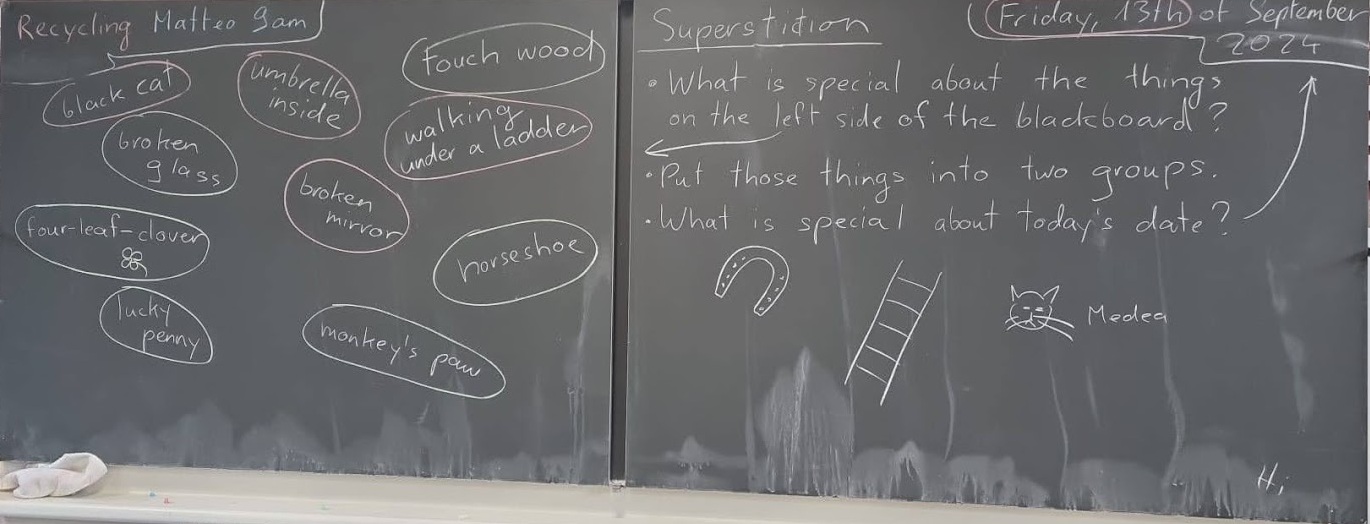 Recycling Matteo Sam
black cat
umbrella
inside
touch wood
broken
glass
walking
under a ladder
broken
mirror
four-leaf-clover
horseshoe
lucky
penny
monkey's paw
Superstition
Friday, 13th of September
2024
• What is special about the things
on the left side of the blackboard?
• Put those things into two groups.
• What is special about today's date?
Medea
Hi